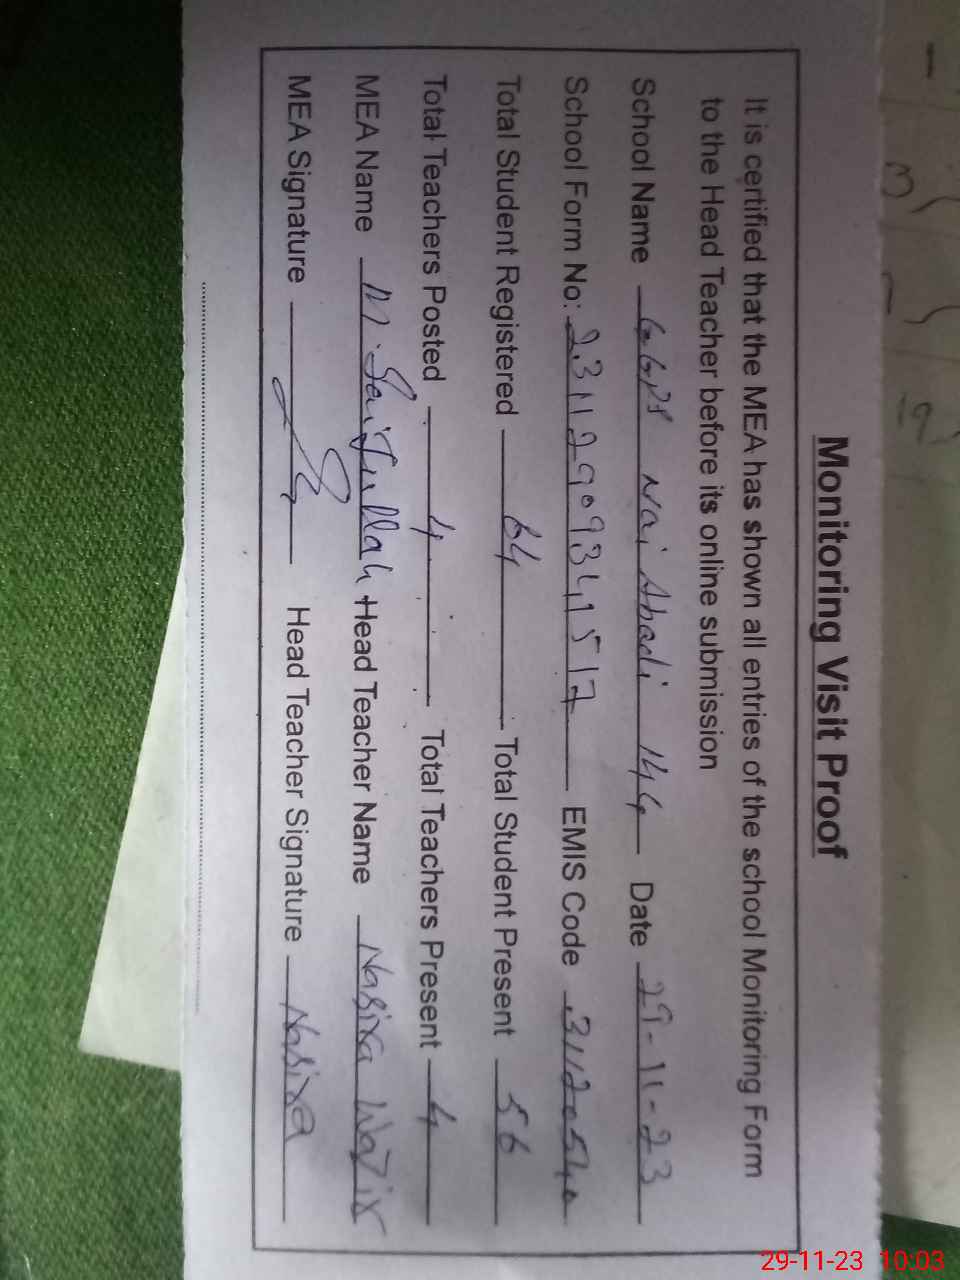 Monitoring Visit Proof
It is certified that the MEA has shown all entries of the school Monitoring Form
to the Head Teacher before its online submission
School Name GGPS Nai Abadi 144 Date 29-11-23
School Form No: EMIS Code 31120540
Total Student Registered 64 Total Student Present 56
Total Teachers Posted 4 Total Teachers Present 4
MEA Name M. Saifullah Head Teacher Name Nasira Wazir
MEA Signature Head Teacher Signature Nasira
29-11-23 10:03